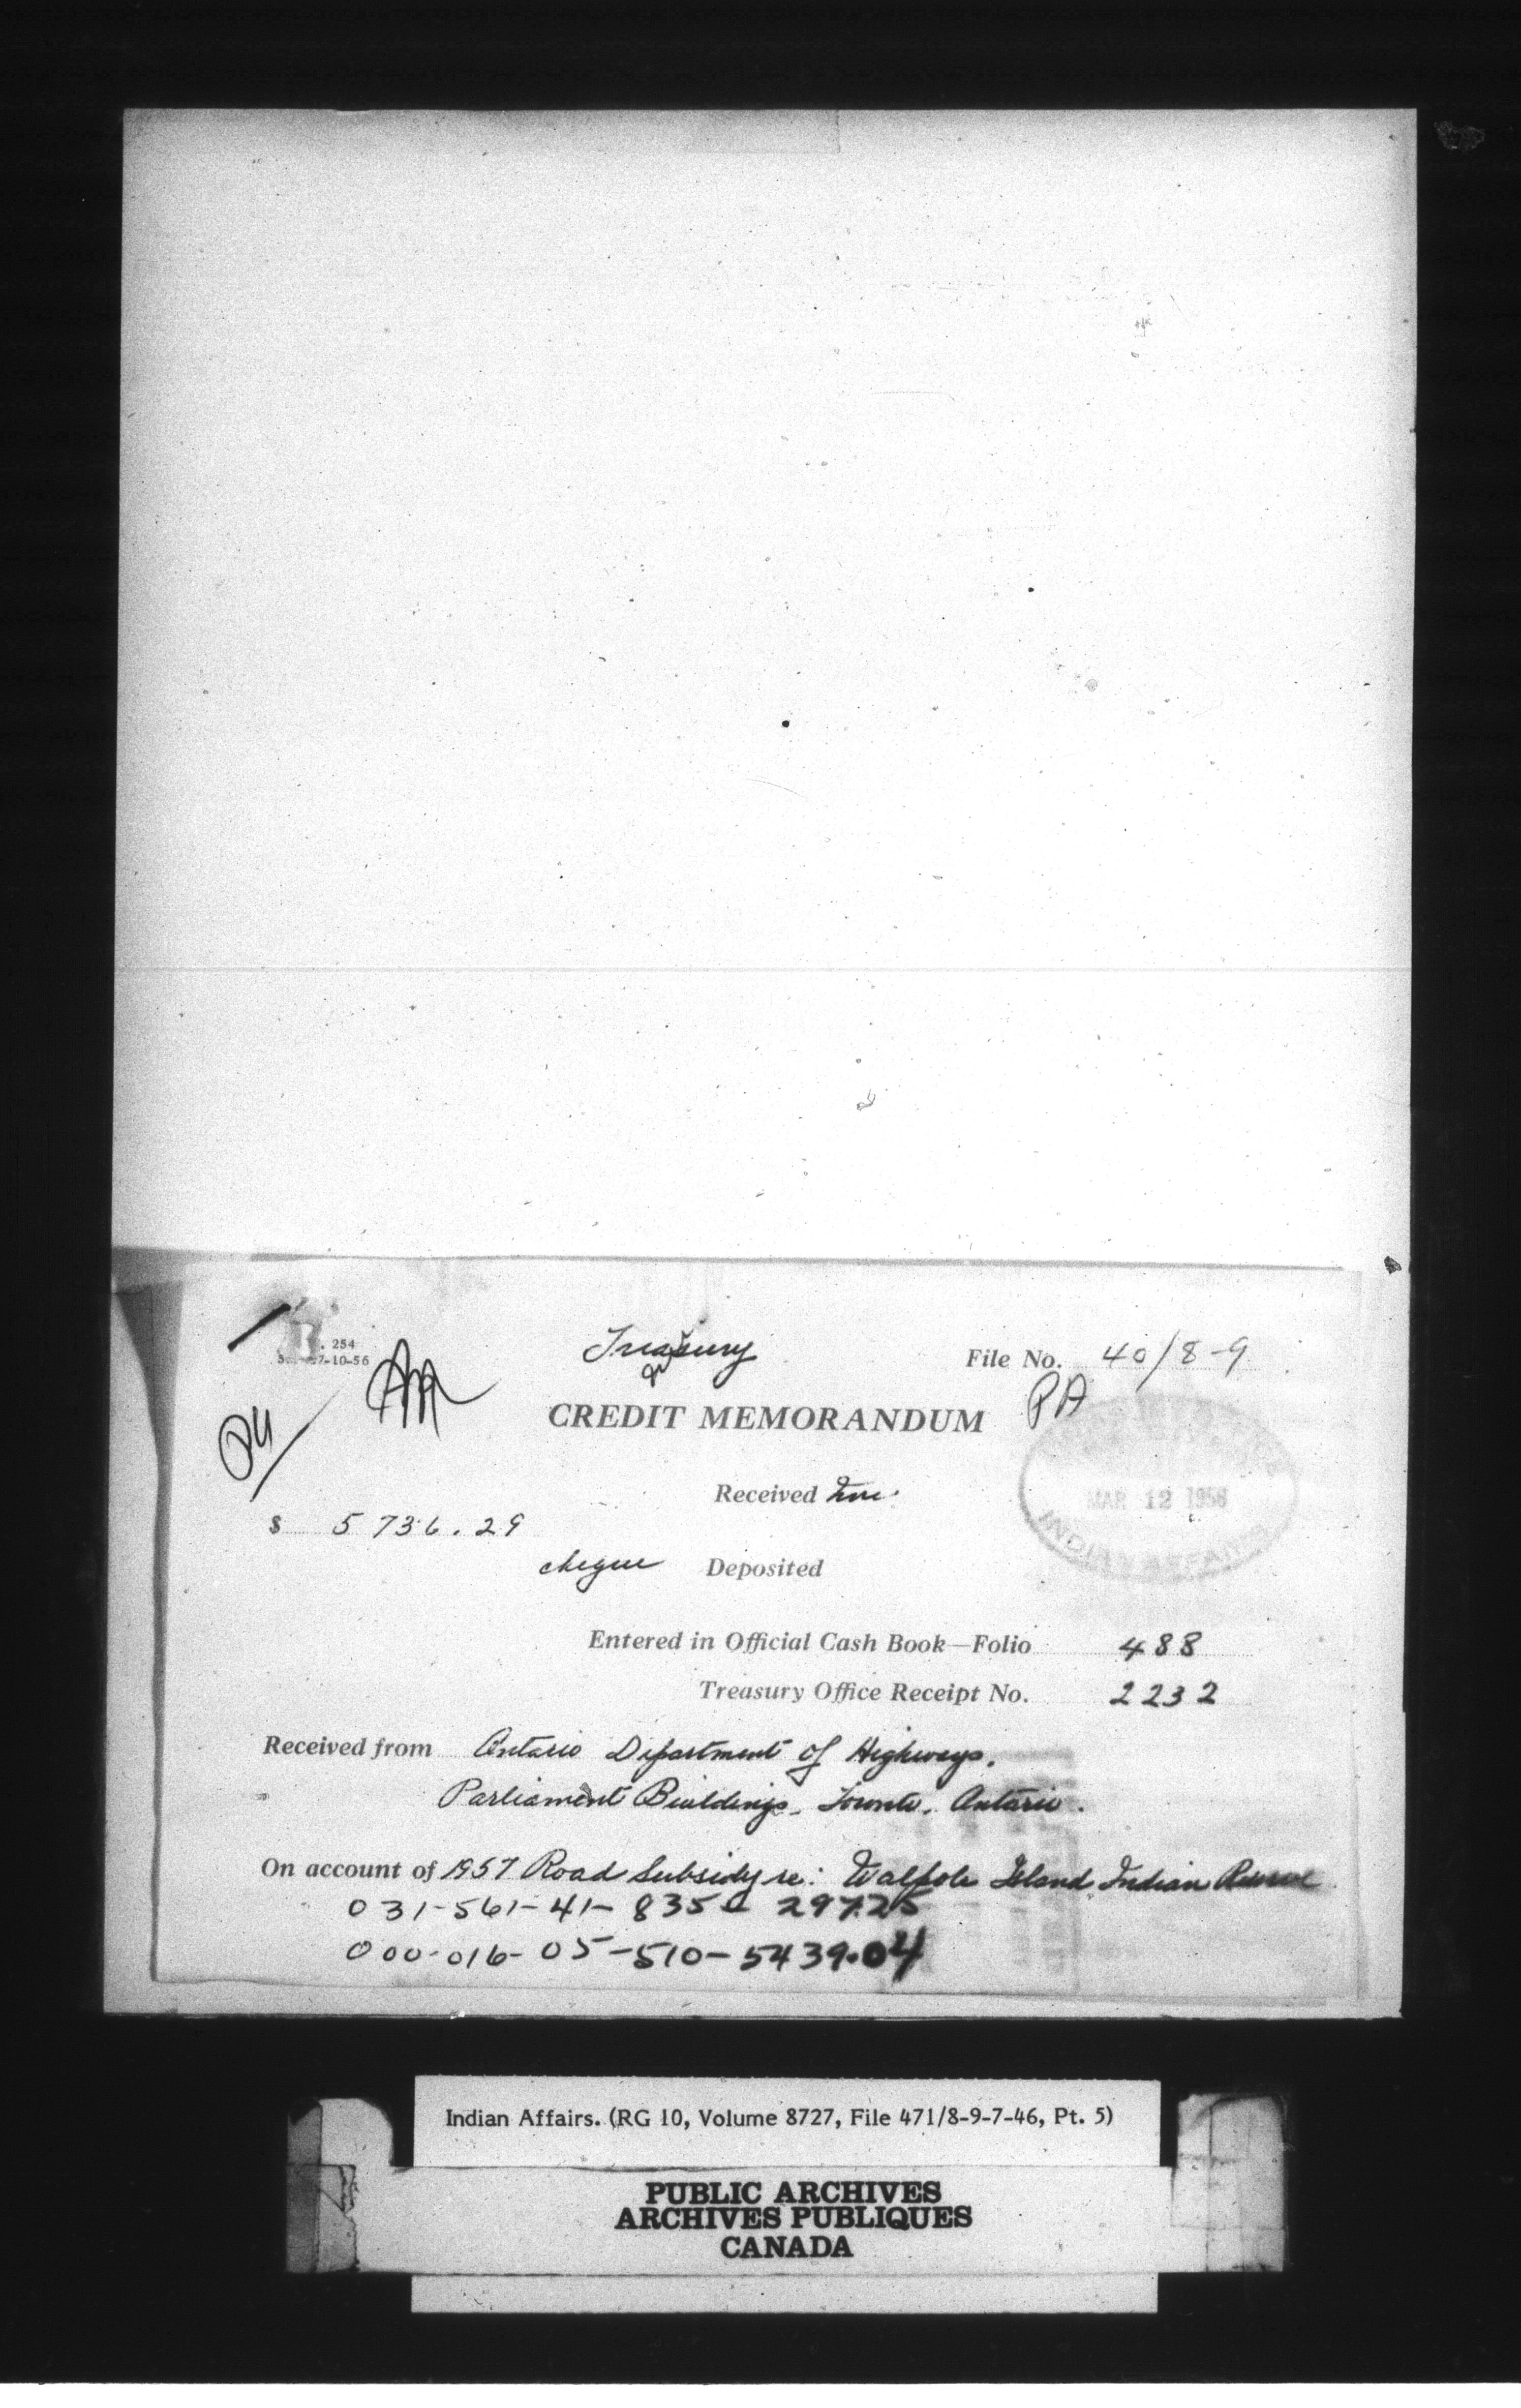 R. 254
7-10-56
Treasury
File No. 40/8-9
PA
CREDIT MEMORANDUM
Received
MAR 12 1958
INDIAN AFFAIRS
$ 5 736.29
cheque Deposited
Entered in Official Cash Book—Folio 488
Treasury Office Receipt No. 2232
Received from Ontario Department of Highways,
Parliament Buildings, Toronto, Ontario.
On account of 1957 Road Subsidy re: Walpole Island Indian Reserve
031-561-41-835- 297.25
000-016-05-510-5439.04
Indian Affairs. (RG 10, Volume 8727, File 471/8-9-7-46, Pt. 5)
PUBLIC ARCHIVES
ARCHIVES PUBLIQUES
CANADA